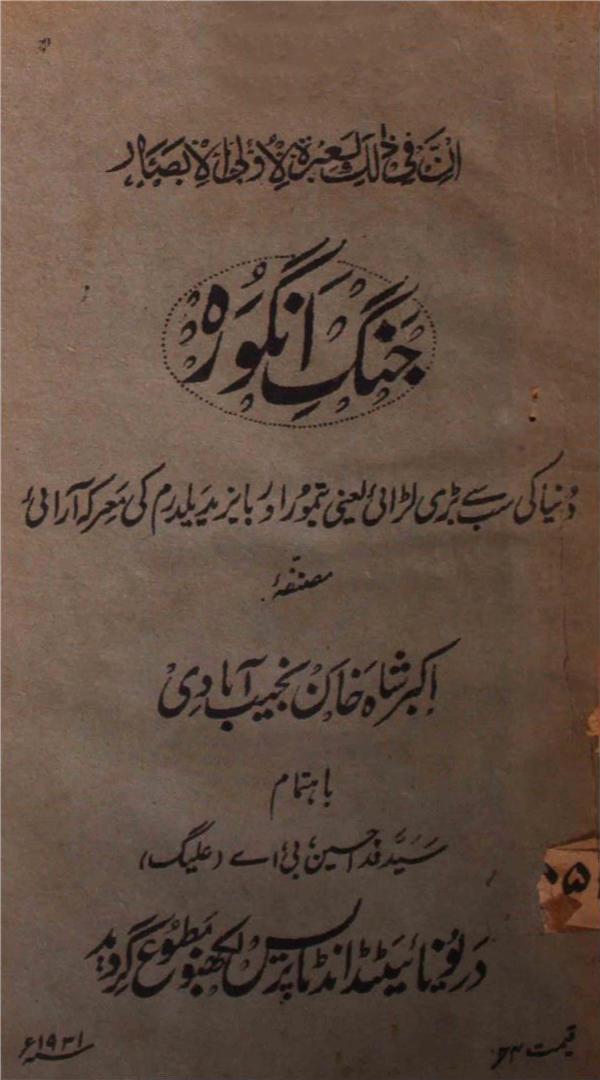 ان فی ذلک لعبرۃ لاولی الابصار
جنگِ انگورہ
دنیا کی سب سے بڑی لڑائی یعنی تیمور اور بایزید یلدرم کی معرکہ آرائی
مصنفۂ
اکبر شاہ خان نجیب آبادی
باہتمام
سید فدا حسین بی اے (علیگ)
در یونائیٹڈ انڈیا پریس لکھنؤ مطبوع گردید
قیمت ۴
سنہ ۱۹۳۱ء